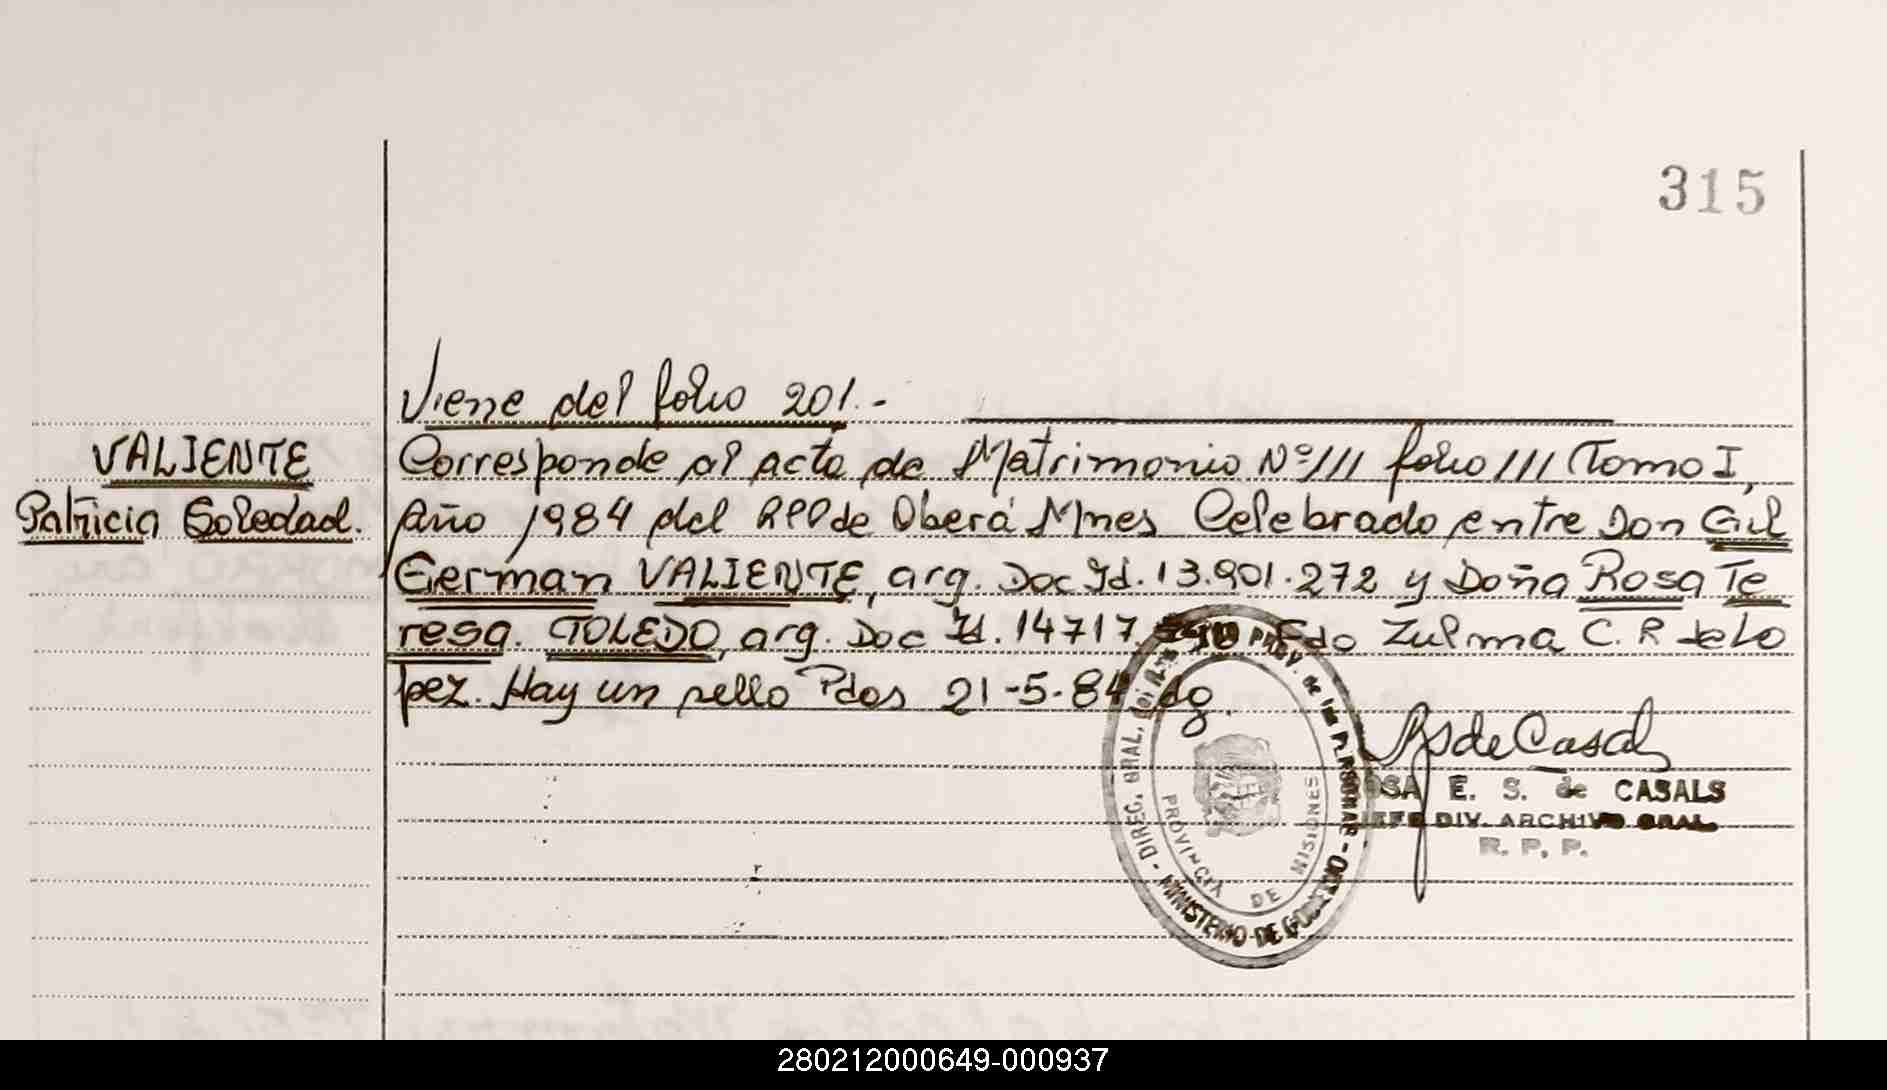 315
Viene del folio 201.-
VALIENTE
Patricia Soledad.
Corresponde al acta de Matrimonio Nº 111 folio 111 Tomo I,
año 1984 del RPP de Oberá Mnes Celebrado entre Don Gil
German VALIENTE, arg. Doc Id. 13.901.272 y Doña Rosa Te
resa. TOLEDO, arg. Doc Id. 14717. Fdo Zulma C. R de Lo
pez. Hay un sello Pdas 21-5-84 dg.
RSdeCasals
SA E. S. de CASALS
JEFE DIV. ARCHIVO GRAL.
R. P. P.
DIREC. GRAL. PROV. de las PERSONAS - MINISTERIO DE GOBIERNO
PROVINCIA DE MISIONES
280212000649-000937